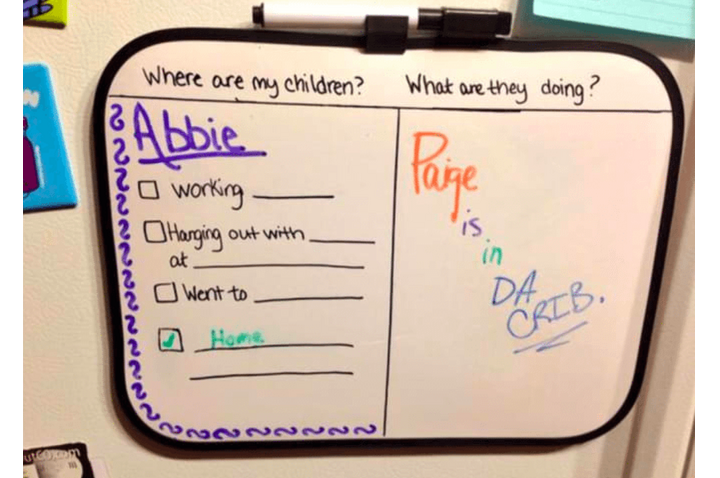 Where are my children?
What are they doing?
Abbie
working
Hanging out with
at
Went to
Home
Paige
is
in
DA
CRIB.